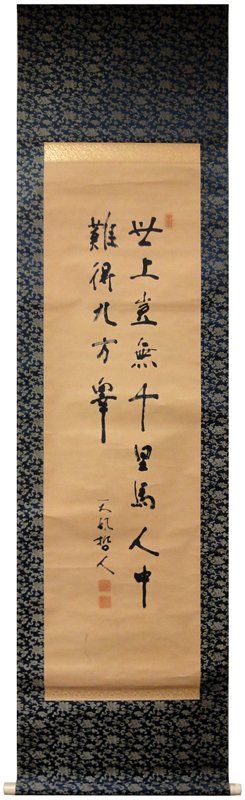 世上豈無千里馬人中
難得九方皐
天風哲人